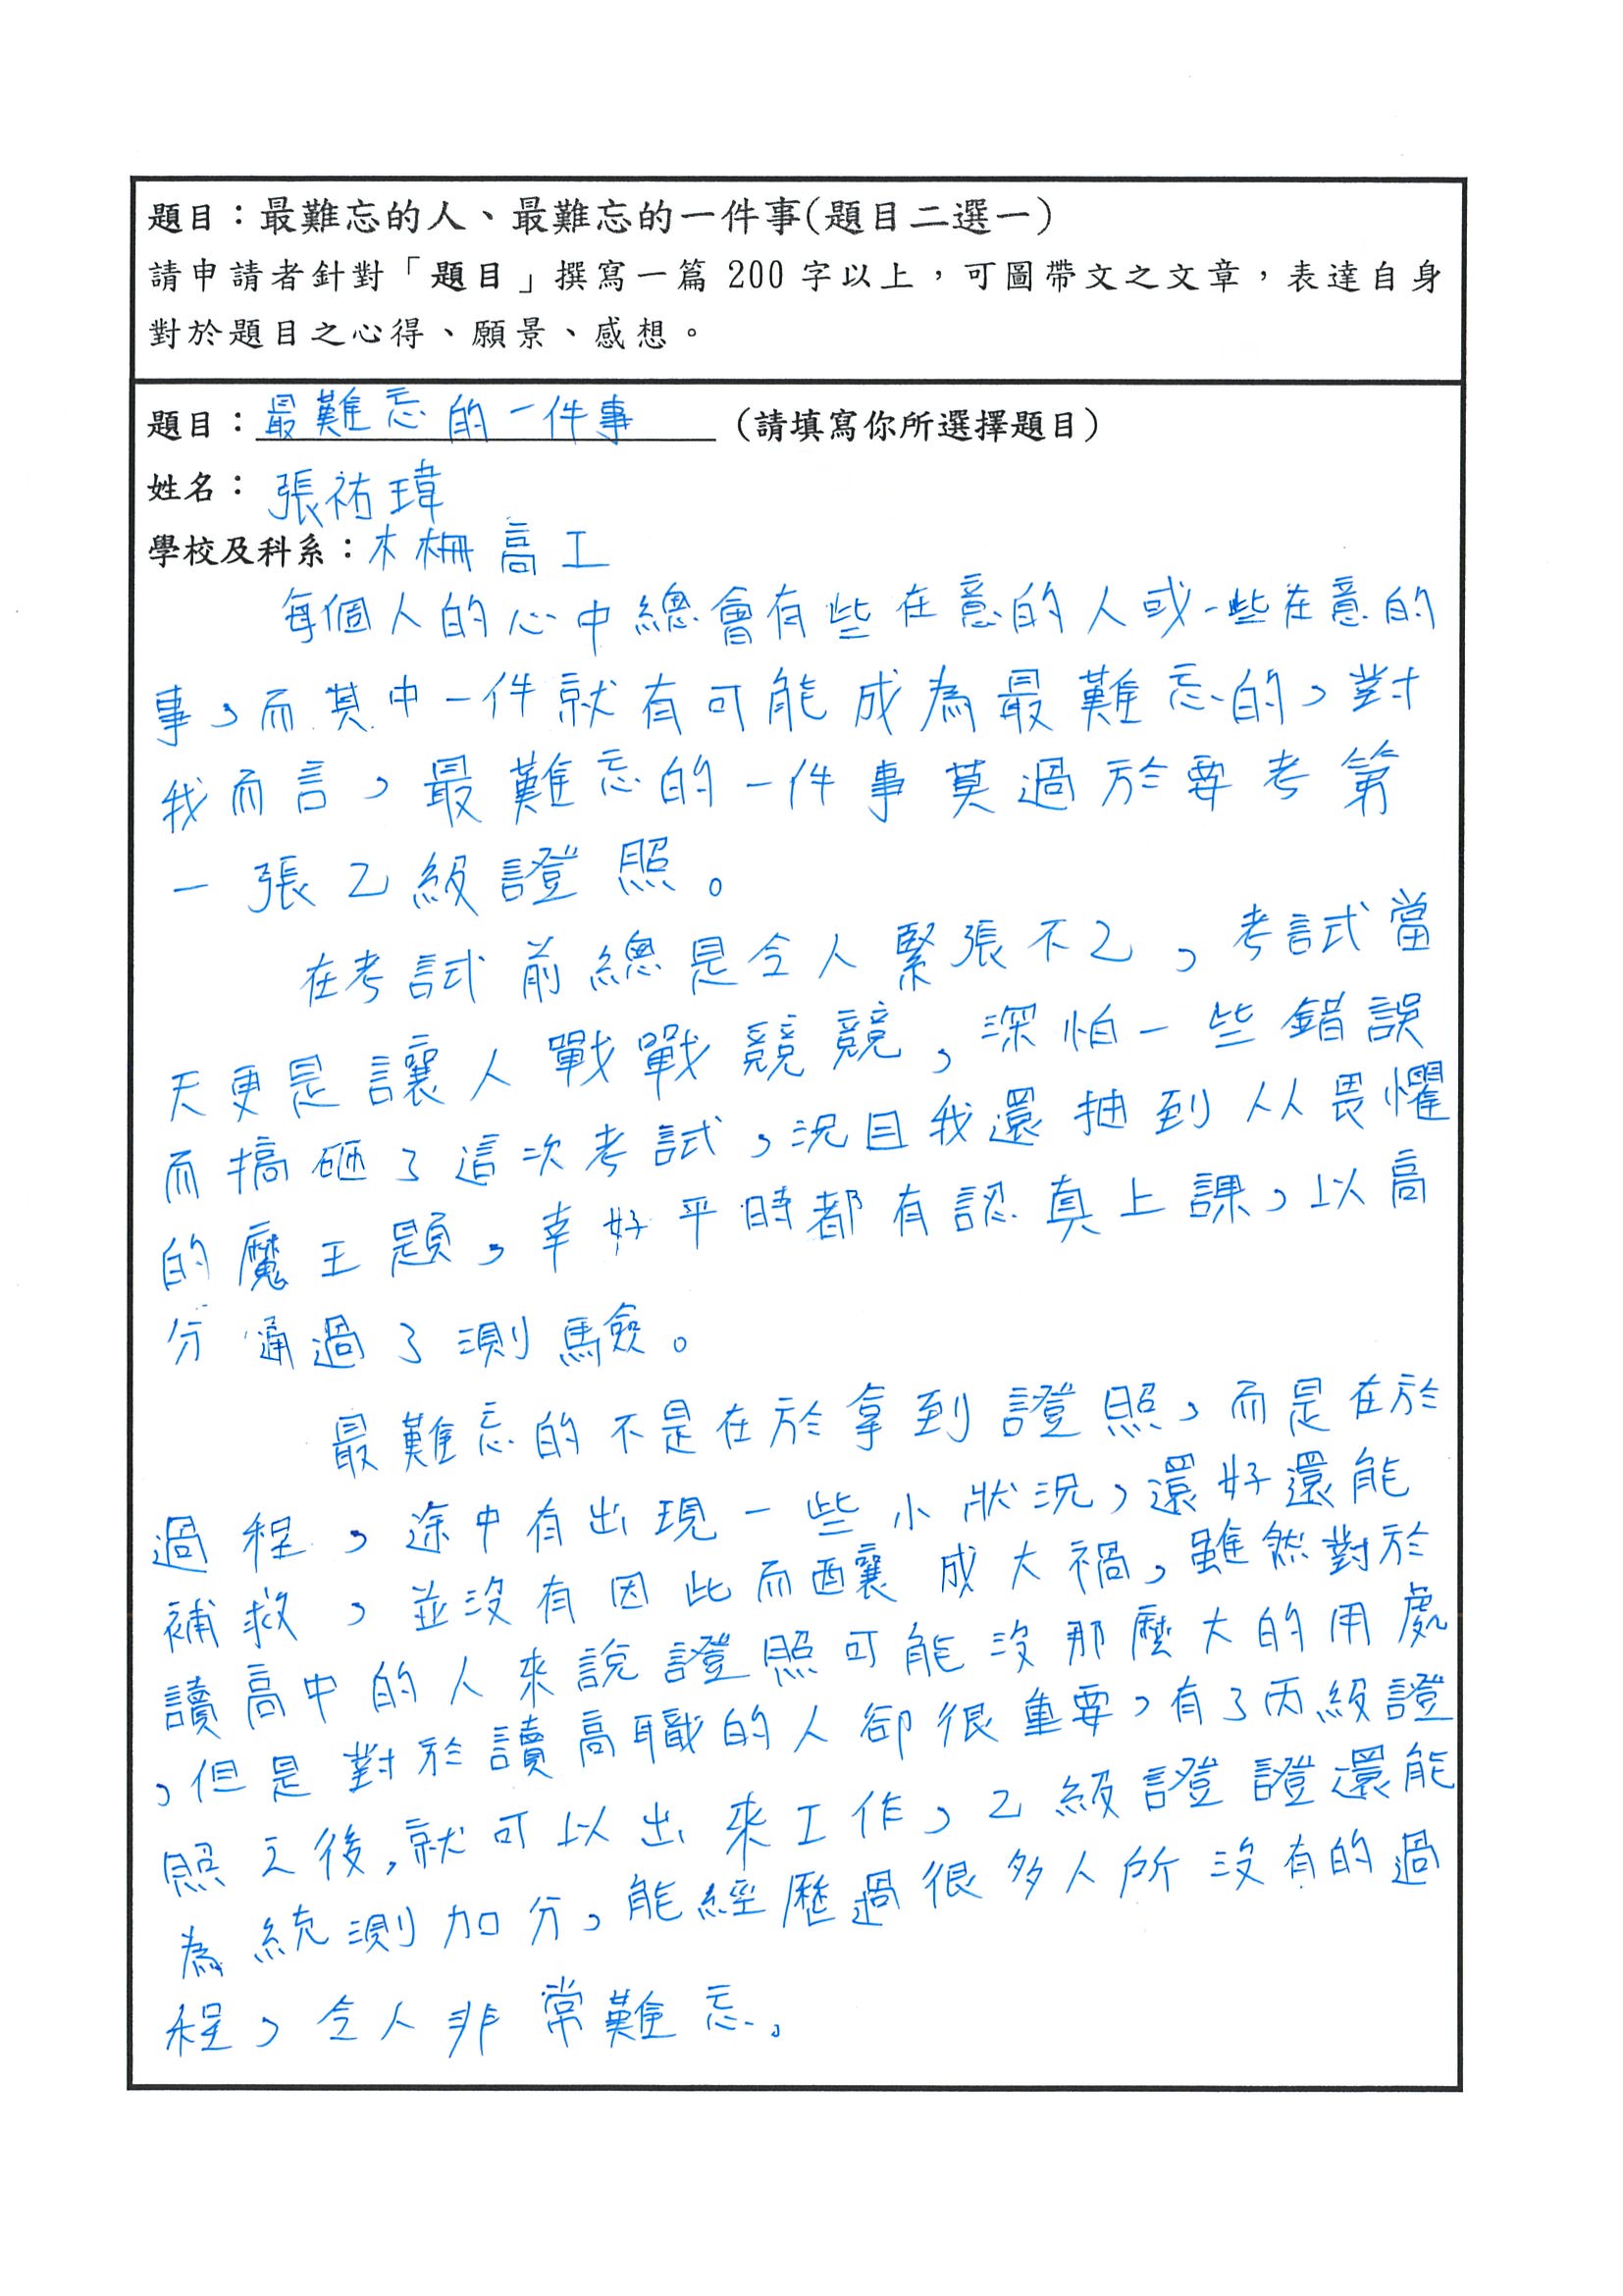 題目：最難忘的人、最難忘的一件事(題目二選一)
請申請者針對「題目」撰寫一篇 200 字以上，可圖帶文之文章，表達自身
對於題目之心得、願景、感想。
題目：最難忘的一件事（請填寫你所選擇題目）
姓名：張祐瑋
學校及科系：木柵高工
每個人的心中總會有些在意的人或一些在意的
事，而其中一件就有可能成為最難忘的，對
我而言，最難忘的一件事莫過於要考第
一張乙級證照。
在考試前總是令人緊張不乙，考試當
天更是讓人戰戰競競，深怕一些錯誤
而搞砸了這次考試，況且我還抽到人人畏懼
的魔王題，幸好平時都有認真上課，以高
分通過了測驗。
最難忘的不是在於拿到證照，而是在於
過程，途中有出現一些小狀況，還好還能
補救，並沒有因此而釀成大禍，雖然對於
讀高中的人來說證照可能沒那麼大的用處
，但是對於讀高職的人卻很重要，有了丙級證
照之後，就可以出來工作，乙級證證還能
為統測加分，能經歷過很多人所沒有的過
程，令人非常難忘。